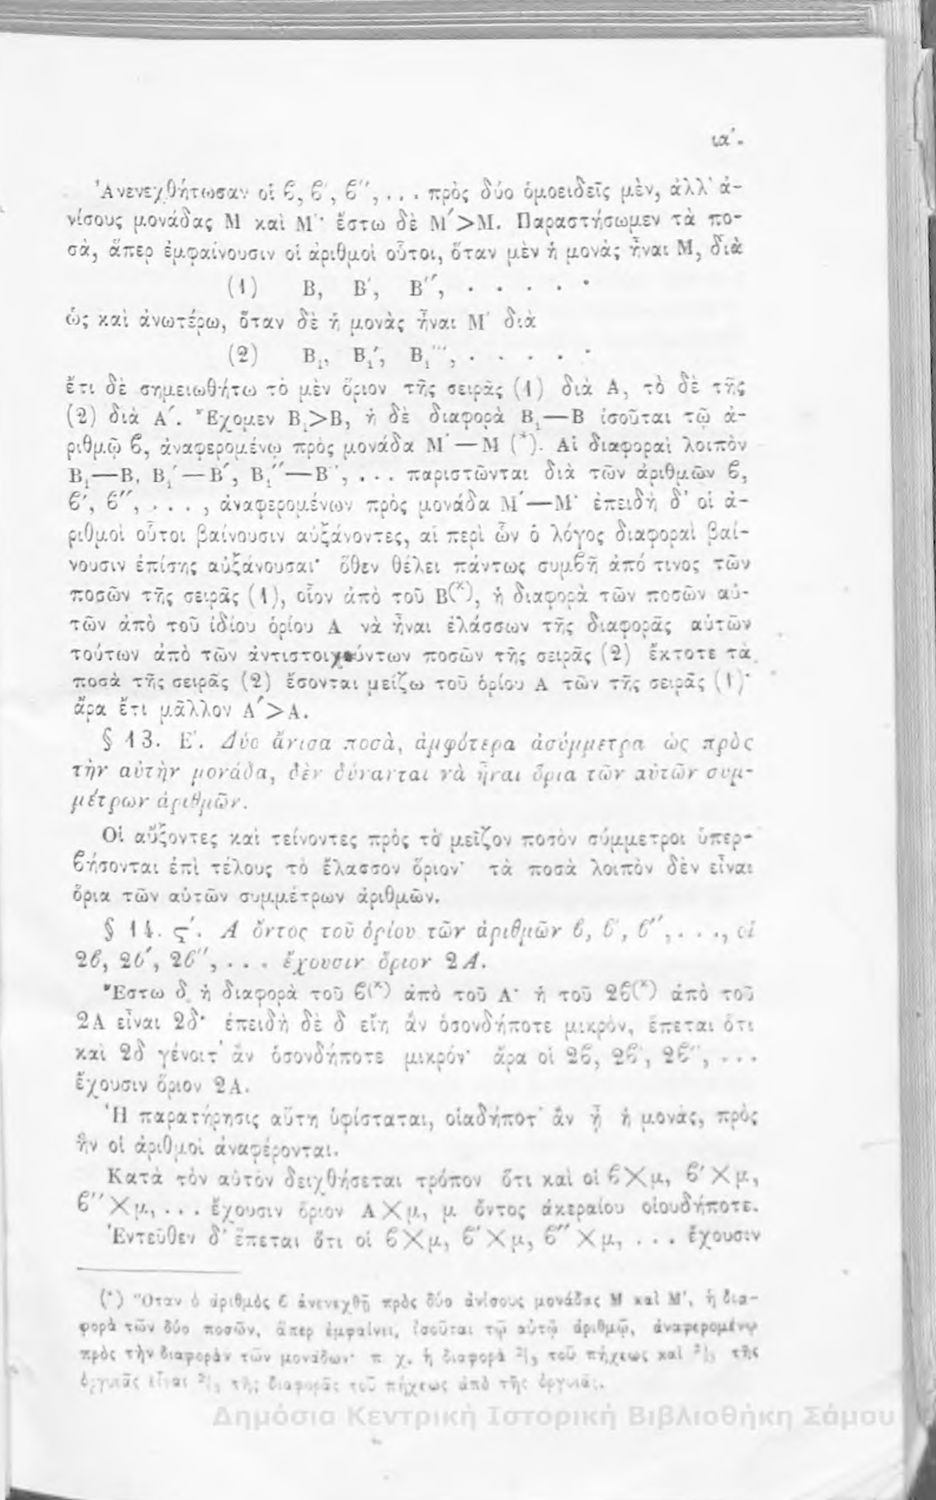 ια΄.
Ἀνενεχθήτωσαν οἱ ϐ, ϐ΄, ϐ΄΄, ... πρὸς δύο ὁμοειδεῖς μὲν, ἀλλ' ἀ-
νίσους μονάδας Μ καὶ Μ΄· ἔστω δὲ Μ΄>Μ. Παραστήσωμεν τὰ πο-
σὰ, ἅπερ ἐμφαίνουσιν οἱ ἀριθμοὶ οὗτοι, ὅταν μὲν ἡ μονὰς ἦναι Μ, διὰ
(1) Β, Β΄, Β΄΄, . . . . . .
ὡς καὶ ἀνωτέρω, ὅταν δὲ ἡ μονὰς ἦναι Μ΄ διὰ
(2) Β₁, Β₁΄, Β₁΄΄, . . . . . .
ἔτι δὲ σημειωθήτω τὸ μὲν ὅριον τῆς σειρᾶς (1) διὰ Α, τὸ δὲ τῆς
(2) διὰ Α΄. Ἔχομεν Β₁>Β, ἡ δὲ διαφορὰ Β₁—Β ἰσοῦται τῷ ἀ-
ριθμῷ ϐ, ἀναφερομένῳ πρὸς μονάδα Μ΄—Μ (*). Αἱ διαφοραὶ λοιπὸν
Β₁—Β, Β₁΄—Β΄, Β₁΄΄—Β΄΄, ... παριστῶνται διὰ τῶν ἀριθμῶν ϐ,
ϐ΄, ϐ΄΄, ...., ἀναφερομένων πρὸς μονάδα Μ΄—Μ· ἐπειδὴ δ' οἱ ἀ-
ριθμοὶ οὗτοι βαίνουσιν αὐξάνοντες, αἱ περὶ ὧν ὁ λόγος διαφοραὶ βαί-
νουσιν ἐπίσης αὐξάνουσαι· ὅθεν θέλει πάντως συμϐῆ ἀπό τινος τῶν
ποσῶν τῆς σειρᾶς (1), οἷον ἀπὸ τοῦ Β(ˣ), ἡ διαφορὰ τῶν ποσῶν αὐ-
τῶν ἀπὸ τοῦ ἰδίου ὁρίου Α νὰ ἦναι ἐλάσσων τῆς διαφορᾶς αὐτῶν
τούτων ἀπὸ τῶν ἀντιστοιχούντων ποσῶν τῆς σειρᾶς (2) ἔκτοτε τὰ
ποσὰ τῆς σειρᾶς (2) ἔσονται μείζω τοῦ ὁρίου Α τῶν τῆς σειρᾶς (1)·
ἄρα ἔτι μᾶλλον Α΄>Α.
§ 13. Ε΄. Δύο ἄνισα ποσὰ, ἀμφότερα ἀσύμμετρα ὡς πρὸς
τὴν αὐτὴν μονάδα, δὲν δύνανται νὰ ἦναι ὅρια τῶν αὐτῶν συμ-
μέτρων ἀριθμῶν.
Οἱ αὔξοντες καὶ τείνοντες πρὸς τὸ μεῖζον ποσὸν σύμμετροι ὑπερ-
ϐήσονται ἐπὶ τέλους τὸ ἔλασσον ὅριον· τὰ ποσὰ λοιπὸν δὲν εἶναι
ὅρια τῶν αὐτῶν συμμέτρων ἀριθμῶν.
§ 14. ς΄. Α ὄντος τοῦ ὁρίου τῶν ἀριθμῶν ϐ, ϐ΄, ϐ΄΄, . . ., οἱ
2ϐ, 2ϐ΄, 2ϐ΄΄, . . . ἔχουσιν ὅριον 2Α.
Ἔστω δ ἡ διαφορὰ τοῦ ϐ(ˣ) ἀπὸ τοῦ Α· ἡ τοῦ 2ϐ(ˣ) ἀπὸ τοῦ
2Α εἶναι 2δ· ἐπειδὴ δὲ δ εἴη ἂν ὁσονδήποτε μικρόν, ἕπεται ὅτι
καὶ 2δ γένοιτ' ἂν ὁσονδήποτε μικρόν· ἄρα οἱ 2ϐ, 2ϐ΄, 2ϐ΄΄, ...
ἔχουσιν ὅριον 2Α.
Ἡ παρατήρησις αὕτη ὑφίσταται, οἱαδήποτ' ἂν ᾖ ἡ μονάς, πρὸς
ἣν οἱ ἀριθμοὶ ἀναφέρονται.
Κατὰ τὸν αὐτὸν δειχθήσεται τρόπον ὅτι καὶ οἱ ϐ×μ, ϐ΄×μ,
ϐ΄΄×μ, ... ἔχουσιν ὅριον Α×μ, μ ὄντος ἀκεραίου οἱουδήποτε.
Ἐντεῦθεν δ' ἕπεται ὅτι οἱ ϐ×μ, ϐ΄×μ, ϐ΄΄×μ, ... ἔχουσιν
(*) Ὅταν ὁ ἀριθμὸς ϐ ἀνενεχθῇ πρὸς δύο ἀνίσους μονάδας Μ καὶ Μ΄, ἡ δια-
φορὰ τῶν δύο ποσῶν, ἅπερ ἐμφαίνει, ἰσοῦται τῷ αὐτῷ ἀριθμῷ, ἀναφερομένῳ
πρὸς τὴν διαφορὰν τῶν μονάδων· π. χ. ἡ διαφορὰ ²/₃ τοῦ πήχεως καὶ ²/₃ τῆς
ὀργυιᾶς εἶναι ²/₃ τῆς διαφορᾶς τοῦ πήχεως ἀπὸ τῆς ὀργυιᾶς.
Δημόσια Κεντρική Ιστορική Βιβλιοθήκη Σάμου